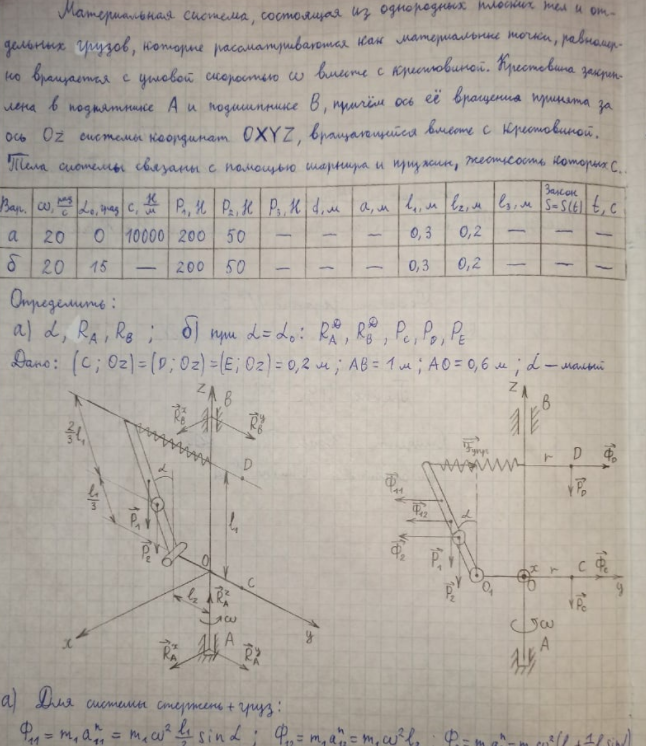 Материальная система, состоящая из однородных плоских тел и от-
дельных грузов, которые рассматриваются как материальные точки, равномер-
но вращается с угловой скоростью ω вместе с крестовиной. Крестовина закреп-
лена в подпятнике А и подшипнике В, причём ось её вращения принята за
ось Oz системы координат OXYZ, вращающийся вместе с крестовиной.
Тела системы связаны с помощью шарнира и пружин, жесткость которых c.
Вар. ω, рад/с α₀, град c, Н/м P₁, Н P₂, Н P₃, Н d, м a, м l₁, м l₂, м l₃, м Закон S=S(t) t, с
а 20 0 10000 200 50 — — — 0,3 0,2 — — —
б 20 15 — 200 50 — — — 0,3 0,2 — — —
Определить:
а) α, R_A, R_B ; б) при α=α₀: R_A^Д, R_B^Д, P_C, P_D, P_E
Дано: (C; Oz)=(D; Oz)=(E; Oz)=0,2 м ; AB=1 м ; AO=0,6 м ; α — малый
z B z B
R_B^x R_B^y
2/3 l₁ α D F_упр r D Φ_D
Φ₁₁ P_D
l₁/3 P₁ l₁ Φ₁₂ α
P₂ Φ₂ P₁
O C P₂ O₁ x O r C Φ_C y
l₂ R_A^z P_C
x ω A y ω A
R_A^x R_A^y
а) Для системы стержень + груз:
Φ₁₁ = m₁a₁₁ⁿ = m₁ω² l₁/2 sin α ; Φ₁₂ = m₁a₁₂ⁿ = m₁ω² l₂